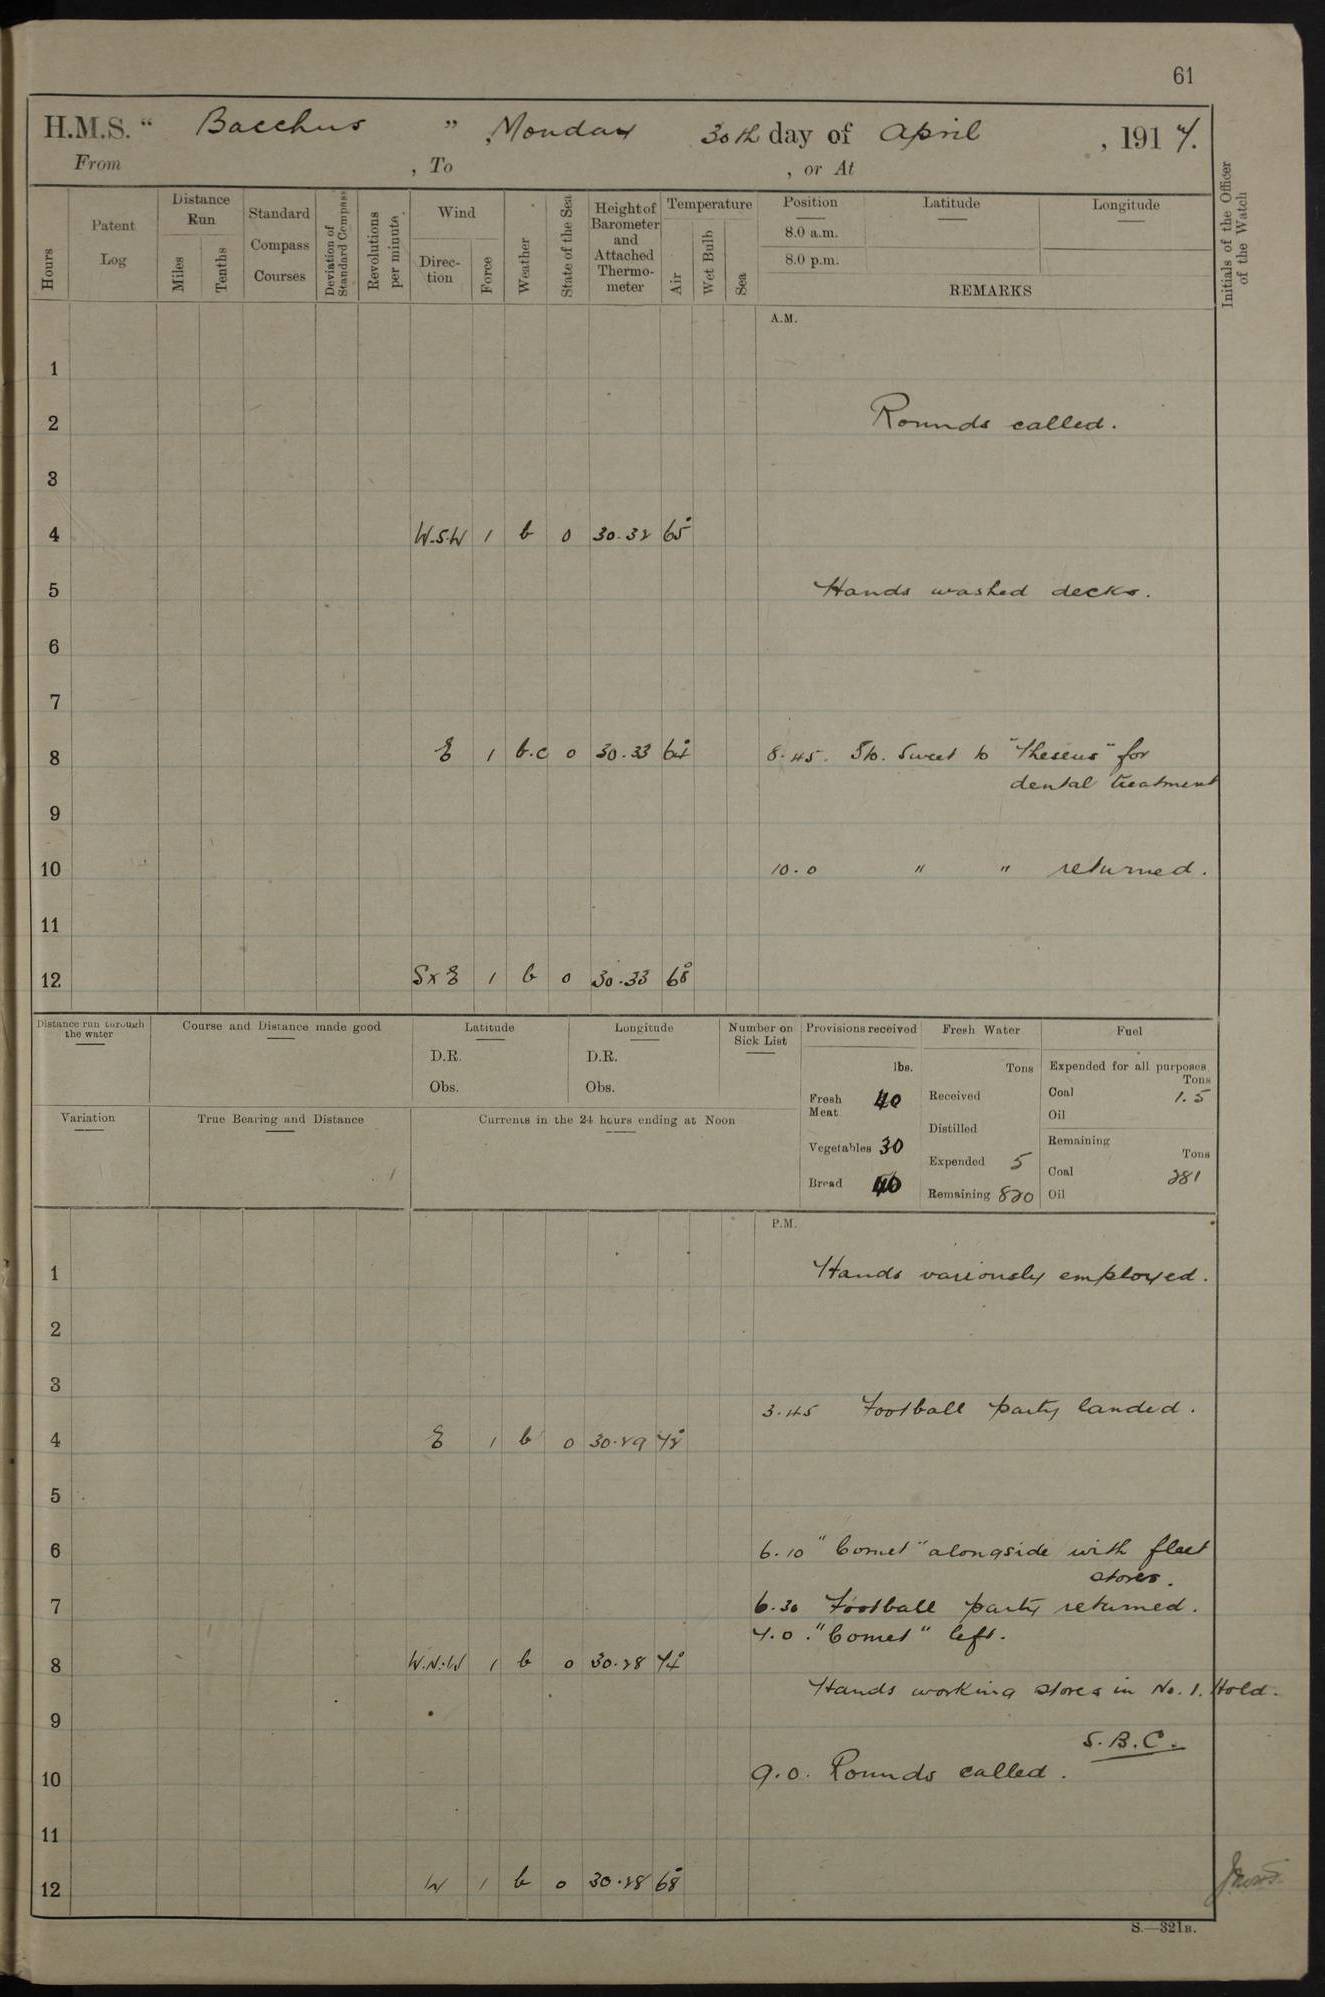 61
H.M.S. " Bacchus ", Monday 30th day of April, 1917.
From , To , or At
Hours
Patent Log
Distance Run
Miles
Tenths
Standard Compass Courses
Deviation of Standard Compass
Revolutions per minute
Wind
Direction
Force
Weather
State of the Sea
Height of Barometer and Attached Thermometer
Temperature
Air
Wet Bulb
Sea
Position
8.0 a.m.
8.0 p.m.
Latitude
Longitude
REMARKS
Initials of the Officer of the Watch
A.M.
1
2 Rounds called.
3
4 W.S.W 1 b 0 30.32 65°
5 Hands washed decks.
6
7
8 E 1 b.c 0 30.33 64° 8.45. Sweet to "Theseus" for
dental treatment
9
10 10.0 " " returned.
11
12 S x E 1 b 0 30.33 68°
Distance run through the water
Course and Distance made good
Latitude
D.R.
Obs.
Longitude
D.R.
Obs.
Number on Sick List
Variation
True Bearing and Distance
Currents in the 24 hours ending at Noon
Provisions received
lbs.
Fresh Meat 40
Vegetables 30
Bread 40
Fresh Water
Tons
Received
Distilled
Expended 5
Remaining 820
Fuel
Expended for all purposes
Tons
Coal 1.5
Oil
Remaining
Tons
Coal 281
Oil
P.M.
1 Hands variously employed.
2
3
3.45 Football party landed.
4 E 1 b 0 30.29 72°
5
6 6.10 "Comet" alongside with fleet
stores.
7 6.30 Football party returned.
7.0. "Comet" left.
8 W.N.W 1 b 0 30.28 74°
Hands working stores in No. 1. Hold.
9
S.B.C.
10 9.0. Rounds called.
11
12 W 1 b 0 30.28 68°
S.—321B.